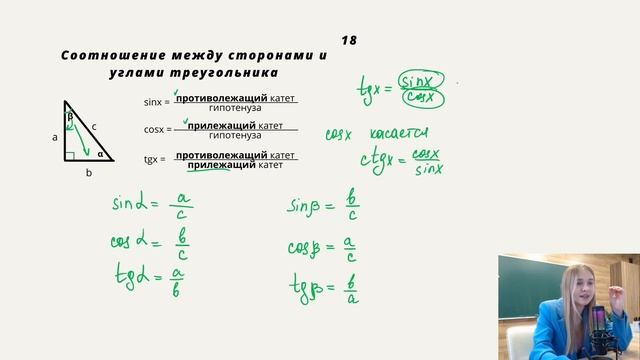 18
Соотношение между сторонами и
углами треугольника
sinx = противолежащий катет
гипотенуза
cosx = прилежащий катет
гипотенуза
tgx = противолежащий катет
прилежащий катет
β
a
c
α
b
tgx = sinx
cosx
cosx касается
ctgx = cosx
sinx
sinα = a
c
cosα = b
c
tgα = a
b
sinβ = b
c
cosβ = a
c
tgβ = b
a